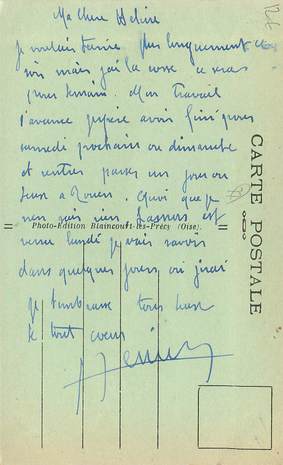 Ma chère
je voulais t'écrire plus longuement ce
soir mais j'ai la cosse ce sera
pour demain. Mon travail
s'avance j'espère avoir fini pour
samedi prochain ou dimanche
et rentrer passer un jour ou
deux à Rouen. Quoi que je
n'en sais rien est
venu lundi je vais savoir
dans quelques jours, où j'irai
Je t'embrasse tous deux
de tout coeur
CARTE POSTALE
Photo-Edition Blaincourt-lès-Précy (Oise).